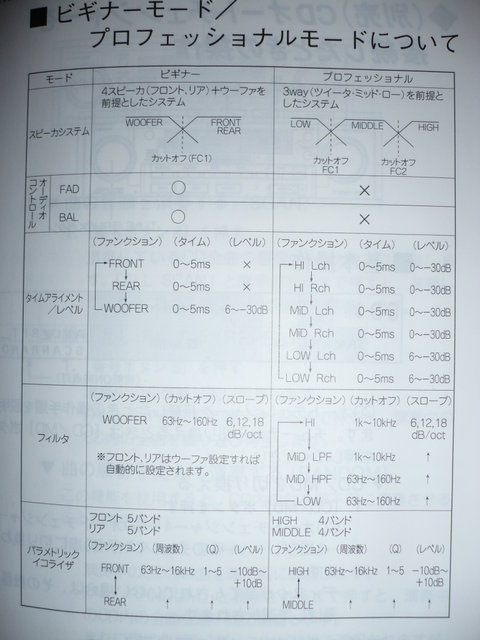 ■ ビギナーモード／
プロフェッショナルモードについて
モード
ビギナー
プロフェッショナル
スピーカシステム
4スピーカ(フロント、リア)＋ウーファを
前提としたシステム
WOOFER
FRONT
REAR
カットオフ(FC1)
3way(ツイータ・ミッド・ロー)を前提
としたシステム
LOW
MIDDLE
HIGH
カットオフ
FC1
カットオフ
FC2
オーディオ
コントロール
FAD
○
×
BAL
○
×
タイムアライメント
／レベル
(ファンクション) (タイム) (レベル)
FRONT 0〜5ms ×
↓
REAR 0〜5ms ×
↓
WOOFER 0〜5ms 6〜−30dB
(ファンクション) (タイム) (レベル)
HI Lch 0〜5ms 0〜−30dB
↓
HI Rch 0〜5ms 0〜−30dB
↓
MiD Lch 0〜5ms 0〜−30dB
↓
MiD Rch 0〜5ms 0〜−30dB
↓
LOW Lch 0〜5ms 6〜−30dB
↓
LOW Rch 0〜5ms 6〜−30dB
フィルタ
(ファンクション) (カットオフ) (スロープ)
WOOFER 63Hz〜160Hz 6,12,18
dB/oct
※フロント、リアはウーファ設定すれば
自動的に設定されます。
(ファンクション) (カットオフ) (スロープ)
HI 1k〜10kHz 6,12,18
dB/oct
↓
MiD LPF 1k〜10kHz ↑
↓
MiD HPF 63Hz〜160Hz ↑
↓
LOW 63Hz〜160Hz ↑
パラメトリック
イコライザ
フロント 5バンド
リア 5バンド
(ファンクション) (周波数) (Q) (レベル)
FRONT 63Hz〜16kHz 1〜5 −10dB〜
+10dB
↕
REAR ↑ ↑ ↑
HIGH 4バンド
MIDDLE 4バンド
(ファンクション) (周波数) (Q) (レベル)
HIGH 63Hz〜16kHz 1〜5 −10dB〜
+10dB
↕
MIDDLE ↑ ↑ ↑